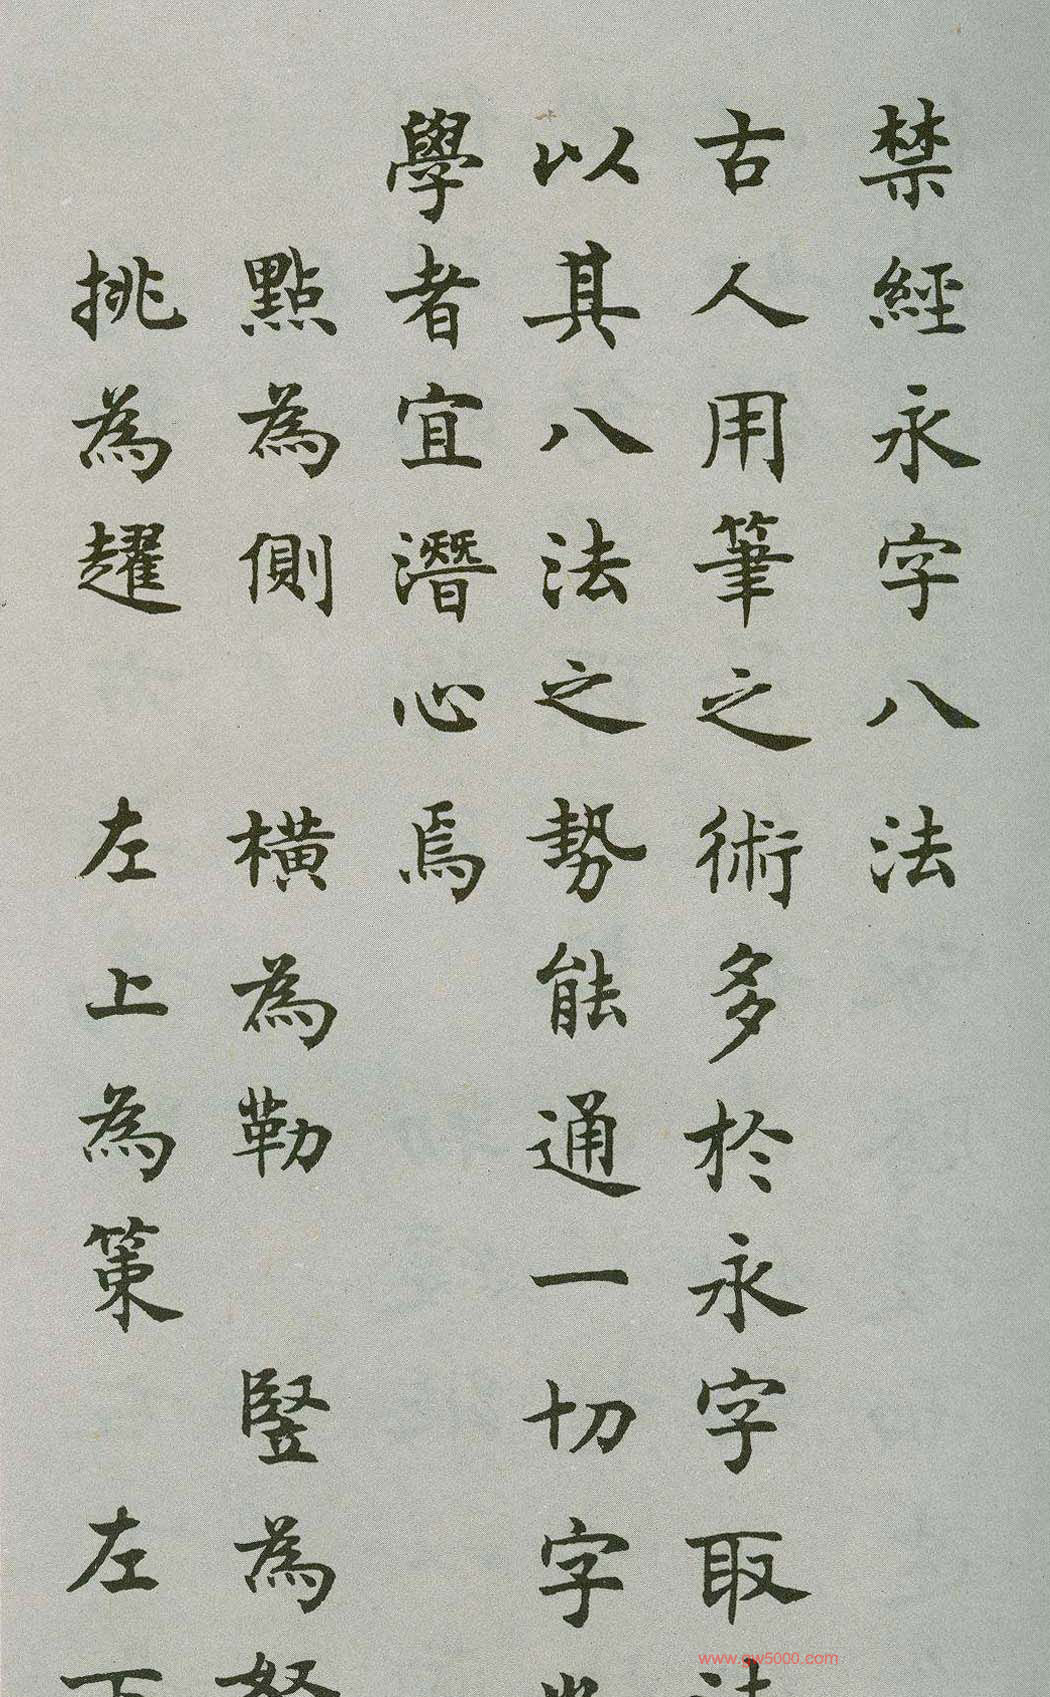 禁經永字八法
古人用筆之術多於永字取法
以其八法之勢能通一切字
學者宜潛心焉
點為側 橫為勒 豎為努
挑為趯 左上為策 左下
www.gw5000.com